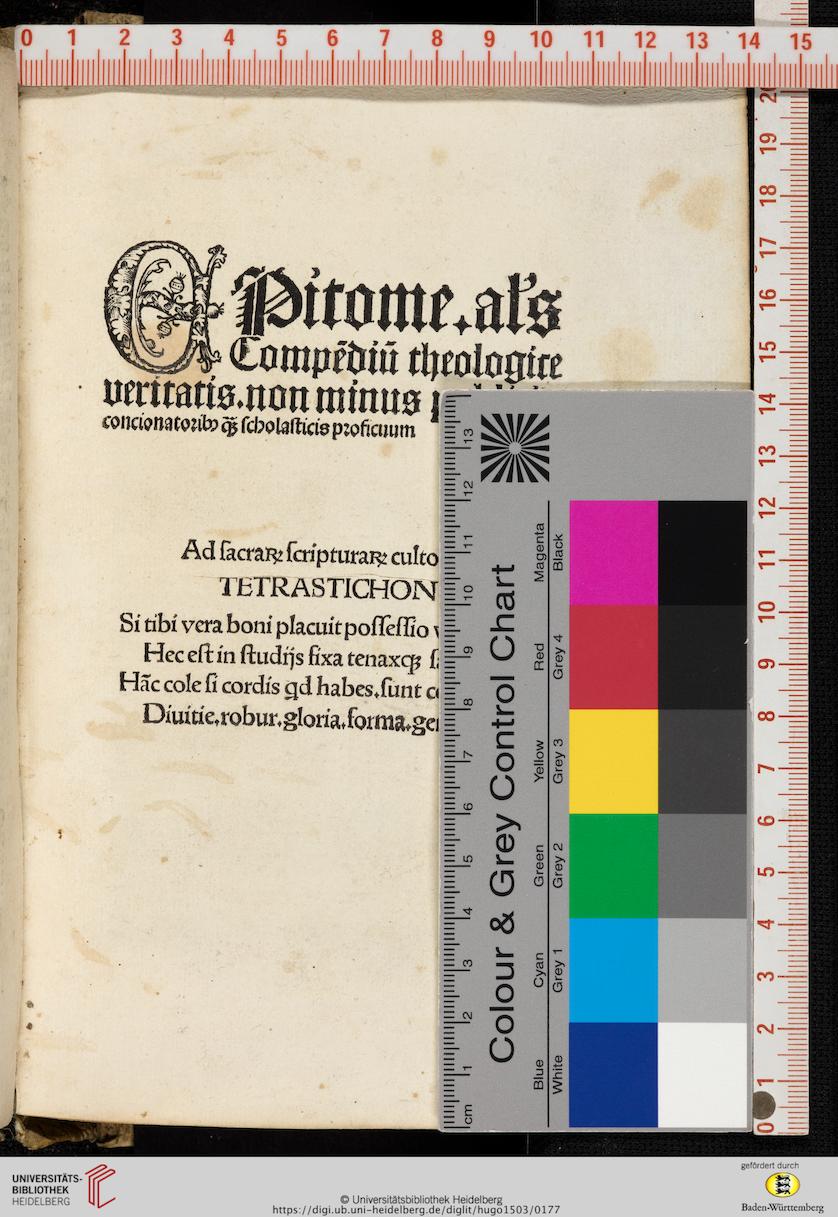 0 1 2 3 4 5 6 7 8 9 10 11 12 13 14 15
EPitome.al's
Compēdiū theologice
veritatis.non minus
concionatoribꝫ qꝫ̃ ſcholaſticis proficuum
Ad ſacraꝝ ſcripturaꝝ culto
TETRASTICHON
Si tibi vera boni placuit poſſeſſio
Hec eſt in ſtudijs fixa tenaxqꝫ
Hāc cole ſi cordis qd habes.ſunt
Diuitie.robur.gloria.forma.ge
20 19 18 17 16 15 14 13 12 11 10 9 8 7 6 5 4 3 2 1 0
13 12 11 10 9 8 7 6 5 4 3 2 1 cm
Colour & Grey Control Chart
Blue Cyan Green Yellow Red Magenta
White Grey 1 Grey 2 Grey 3 Grey 4 Black
UNIVERSITÄTS-
BIBLIOTHEK
HEIDELBERG
© Universitätsbibliothek Heidelberg
https://digi.ub.uni-heidelberg.de/diglit/hugo1503/0177
gefördert durch
Baden-Württemberg